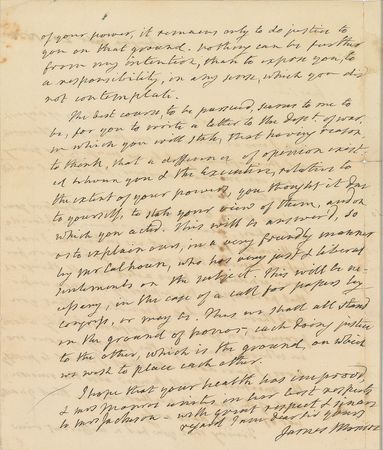 of your power, it remains only to do justice to
you on that ground. Nothing can be further
from my intention, than to expose you, to
a responsibility, in any sense, which you did
not contemplate.
The best course, to be pursued, seems to me to
be, for you to write a letter to the Dept. of war,
in which you will state, that having reason
to think, that a difference of opinion exist-
ed between you & the Executive, relative to
the extent of your powers, you thought it due
to yourself, to state your view of them, and on
which you acted. This will be answerd, so
as to explain ours, in a very friendly manner
by Mr Calhoun, who has very just & liberal
sentiments on the subject. This will be ne-
cessary, in the case of a call for papers by
Congress, or may be. Thus we shall all stand
on the ground of honor, each doing justice
to the other, which is the ground, on which
we wish to place each other.
I hope that your health has improved
& Mrs Monroe unites in her best respects
to Mrs Jackson - with great respect & sincere
regard I am dear Sir yours
James Monroe